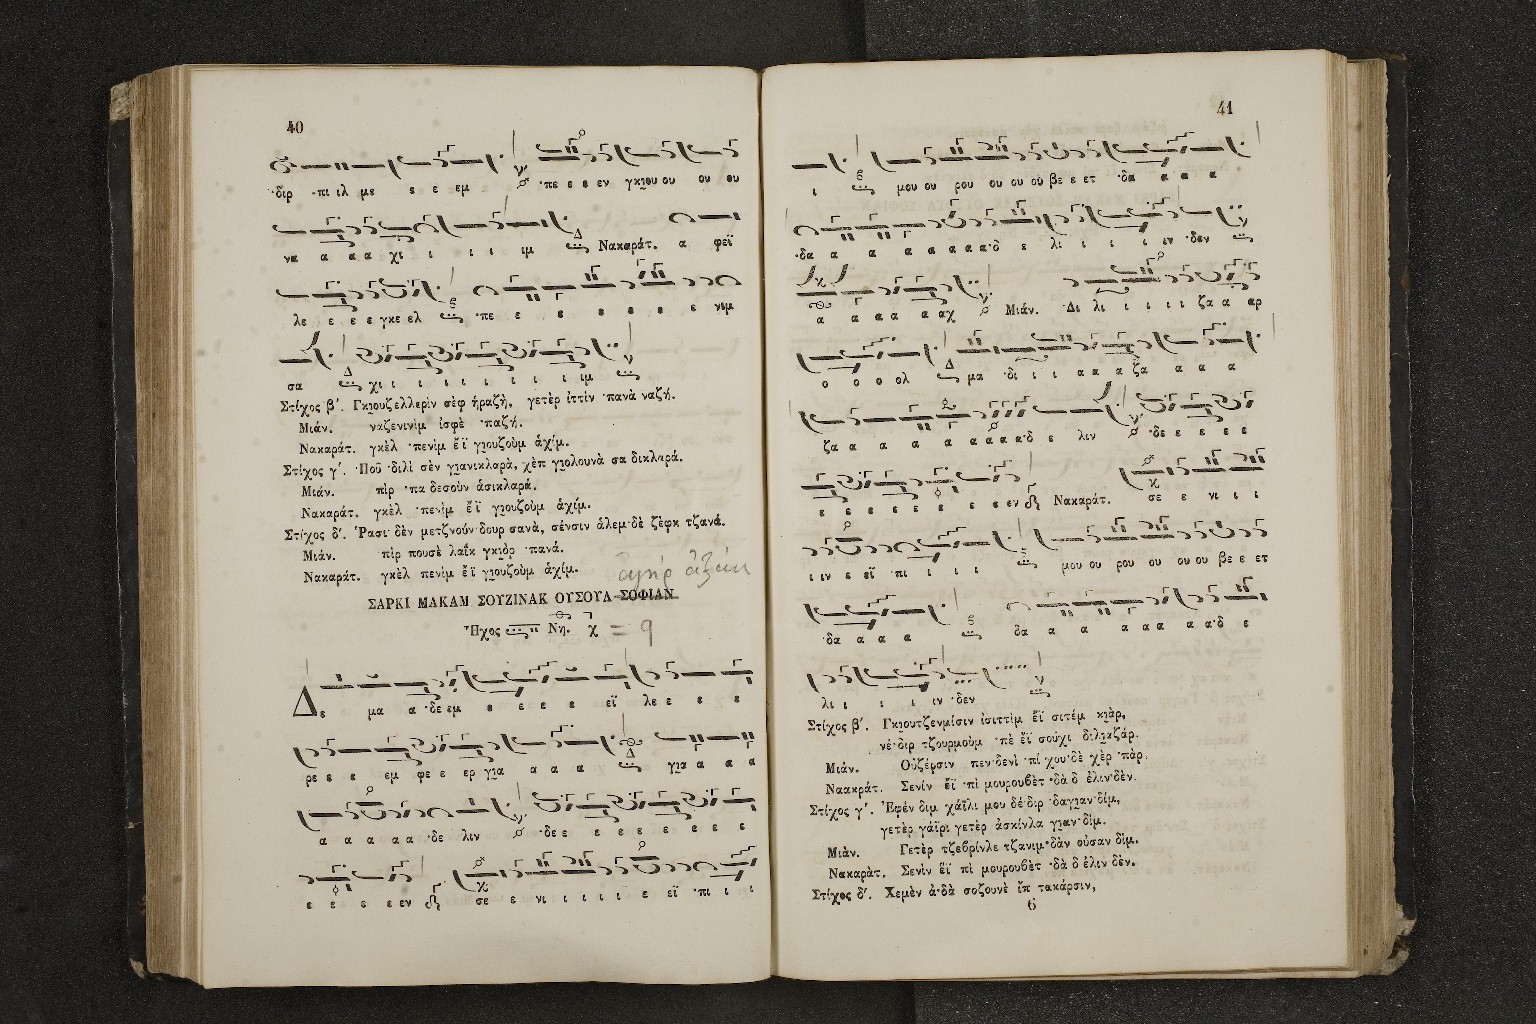 40
·διρ ·πι ιλ με ε ε εμ ·πε ε ε εν γκιου ου ου ου
να α α α χι ι ι ι ιμ Νακαράτ. α φεϊ
λε ε ε ε γκε ελ ·πε ε ε ε ε ε ε νιμ
σα χι ι ι ι ι ι ι ι ι ιμ
Στίχος β΄. Γκιουζελλερὶν σὲφ ἡραζὴ, γετὲρ ἰττίν ·πανὰ ναζή.
Μιάν. ναζενινὶμ ἰσφὲ ·παζή.
Νακαράτ. γκὲλ ·πενὶμ ἔϊ γιουζοὺμ ἀχίμ.
Στίχος γ΄. ·Ποῦ ·διλὶ σὲν γιανικλαρὰ, χὲπ γιολουνὰ σα δικλαρά.
Μιάν. πὶρ ·πα δεσοὺν ἀσικλαρά.
Νακαράτ. γκὲλ ·πενὶμ ἔϊ γιουζοὺμ ἀχίμ.
Στίχος δ΄. Ῥασι·δὲν μετζνούν·δουρ σανὰ, σένσιν ἀλεμ·δὲ ζὲφκ τζανά.
Μιάν. πὶρ πουσὲ λαΐκ γκιὸρ ·πανά.
Νακαράτ. γκὲλ πενὶμ ἔϊ γιουζοὺμ ἀχίμ.
ΣΑΡΚΙ ΜΑΚΑΜ ΣΟΥΖΙΝΑΚ ΟΥΣΟΥΛ ΣΟΦΙΑΝ
Ἦχος Νη. χ = q
Δε μα α ·δε εμ ε ε ε ε εϊ λε ε ε ε
ρε ε ε εμ φε ε ερ για α α α για α α α
α α α α α ·δε λιν ·δε ε ε ε ε ε ε ε ε
ε ε ε ε εν σε ε νι ι ι ι ι ε εϊ ·πι ι ι
41
ι μου ου ρου ου ου οὺ βε ε ετ ·δα α α α
·δα α α α α α α α·δ ε λι ι ι ι ιν ·δεν
α α α α α αχ Μιάν. ·Δι λι ι ι ι ι ζα α αρ
ο ο ο ολ μα ·δι ι ι α α α ζα α α α
ζα α α α α α α α α·δ ε λιν ·δε ε ε ε ε
ε ε ε ε ε ε ε ε εν Νακαράτ. σε ε νι ι ι
ι ιν ε εϊ ·πι ι ι ι μου ου ρου ου ου ου βε ε ετ
·δα α α α δα α α α α α α α·δ ε
λι ι ι ι ιν ·δεν
Στίχος β΄. Γκιουτζενμίσιν ἰσιττὶμ ἔϊ σιτέμ κιὰρ,
νέ·διρ τζουρμοὺμ ·πὲ ἔϊ σούχι διλιαζάρ.
Μιάν. Οὐζέρσιν πεν·δενὶ ·πί χου·δὲ χὲρ ·πάρ.
Ναακράτ. Σενίν ἔϊ ·πὶ μουρουβὲτ ·δὰ δ ἐλιν·δὲν.
Στίχος γ΄. Ἐφέν διμ χάϊλι μου δέ·διρ ·δαγιαν·δίμ,
γετὲρ γάϊρι γετὲρ ἀσκίνλα γιαν·δίμ.
Μιὰν. Γετὲρ τζεβρίνλε τζανιμ·δὰν οὐσαν δίμ.
Νακαρὰτ. Σενὶν ἔϊ πὶ μουρουβὲτ ·δὰ δ ἐλιν δὲν.
Στίχος δ΄. Χεμὲν ἀ·δὰ σοζουνὲ ἲπ τακάρσιν,
6